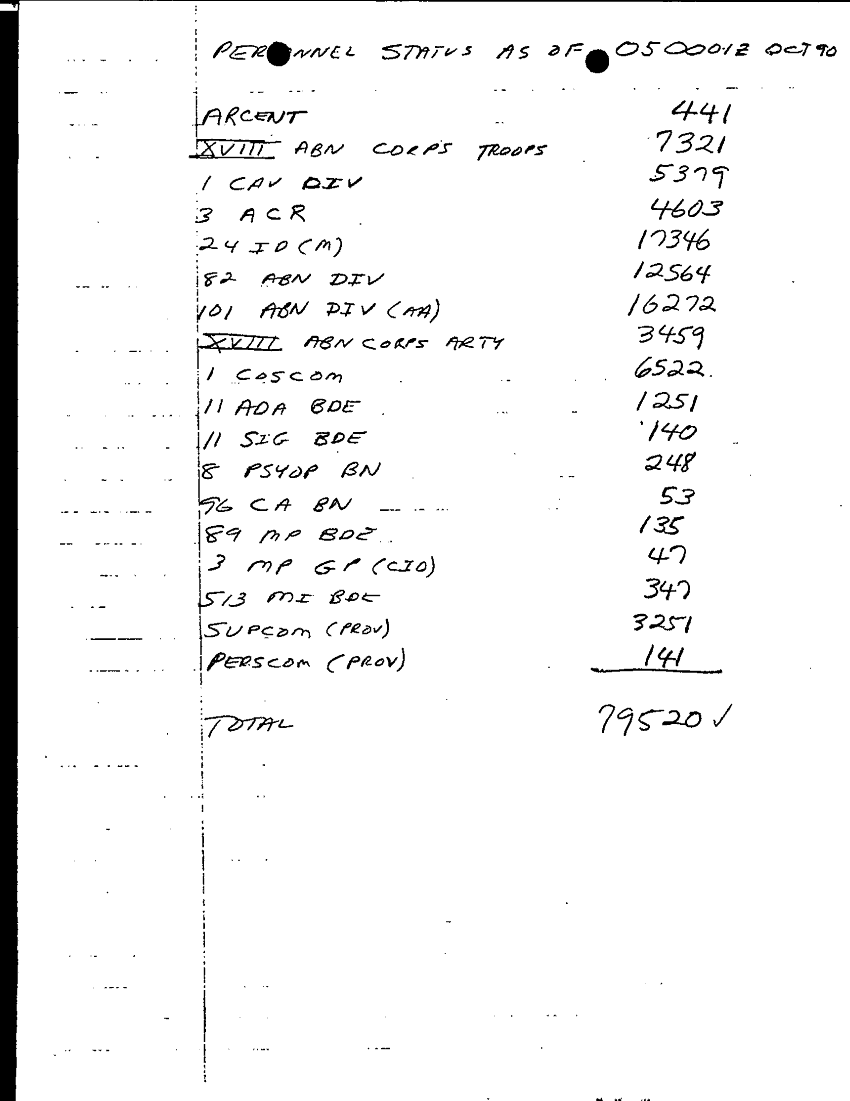 PERSONNEL STATUS AS OF 050001Z OCT 90
ARCENT 441
XVIII ABN CORPS TROOPS 7321
1 CAV DIV 5379
3 ACR 4603
24 ID (M) 17346
82 ABN DIV 12564
101 ABN DIV (AA) 16272
XVIII ABN CORPS ARTY 3459
1 COSCOM 6522
11 ADA BDE 1251
11 SIG BDE 140
8 PSYOP BN 248
96 CA BN 53
89 MP BDE 135
3 MP GP (CID) 47
513 MI BDE 347
SUPCOM (PROV) 3251
PERSCOM (PROV) 141
TOTAL 79520 ✓